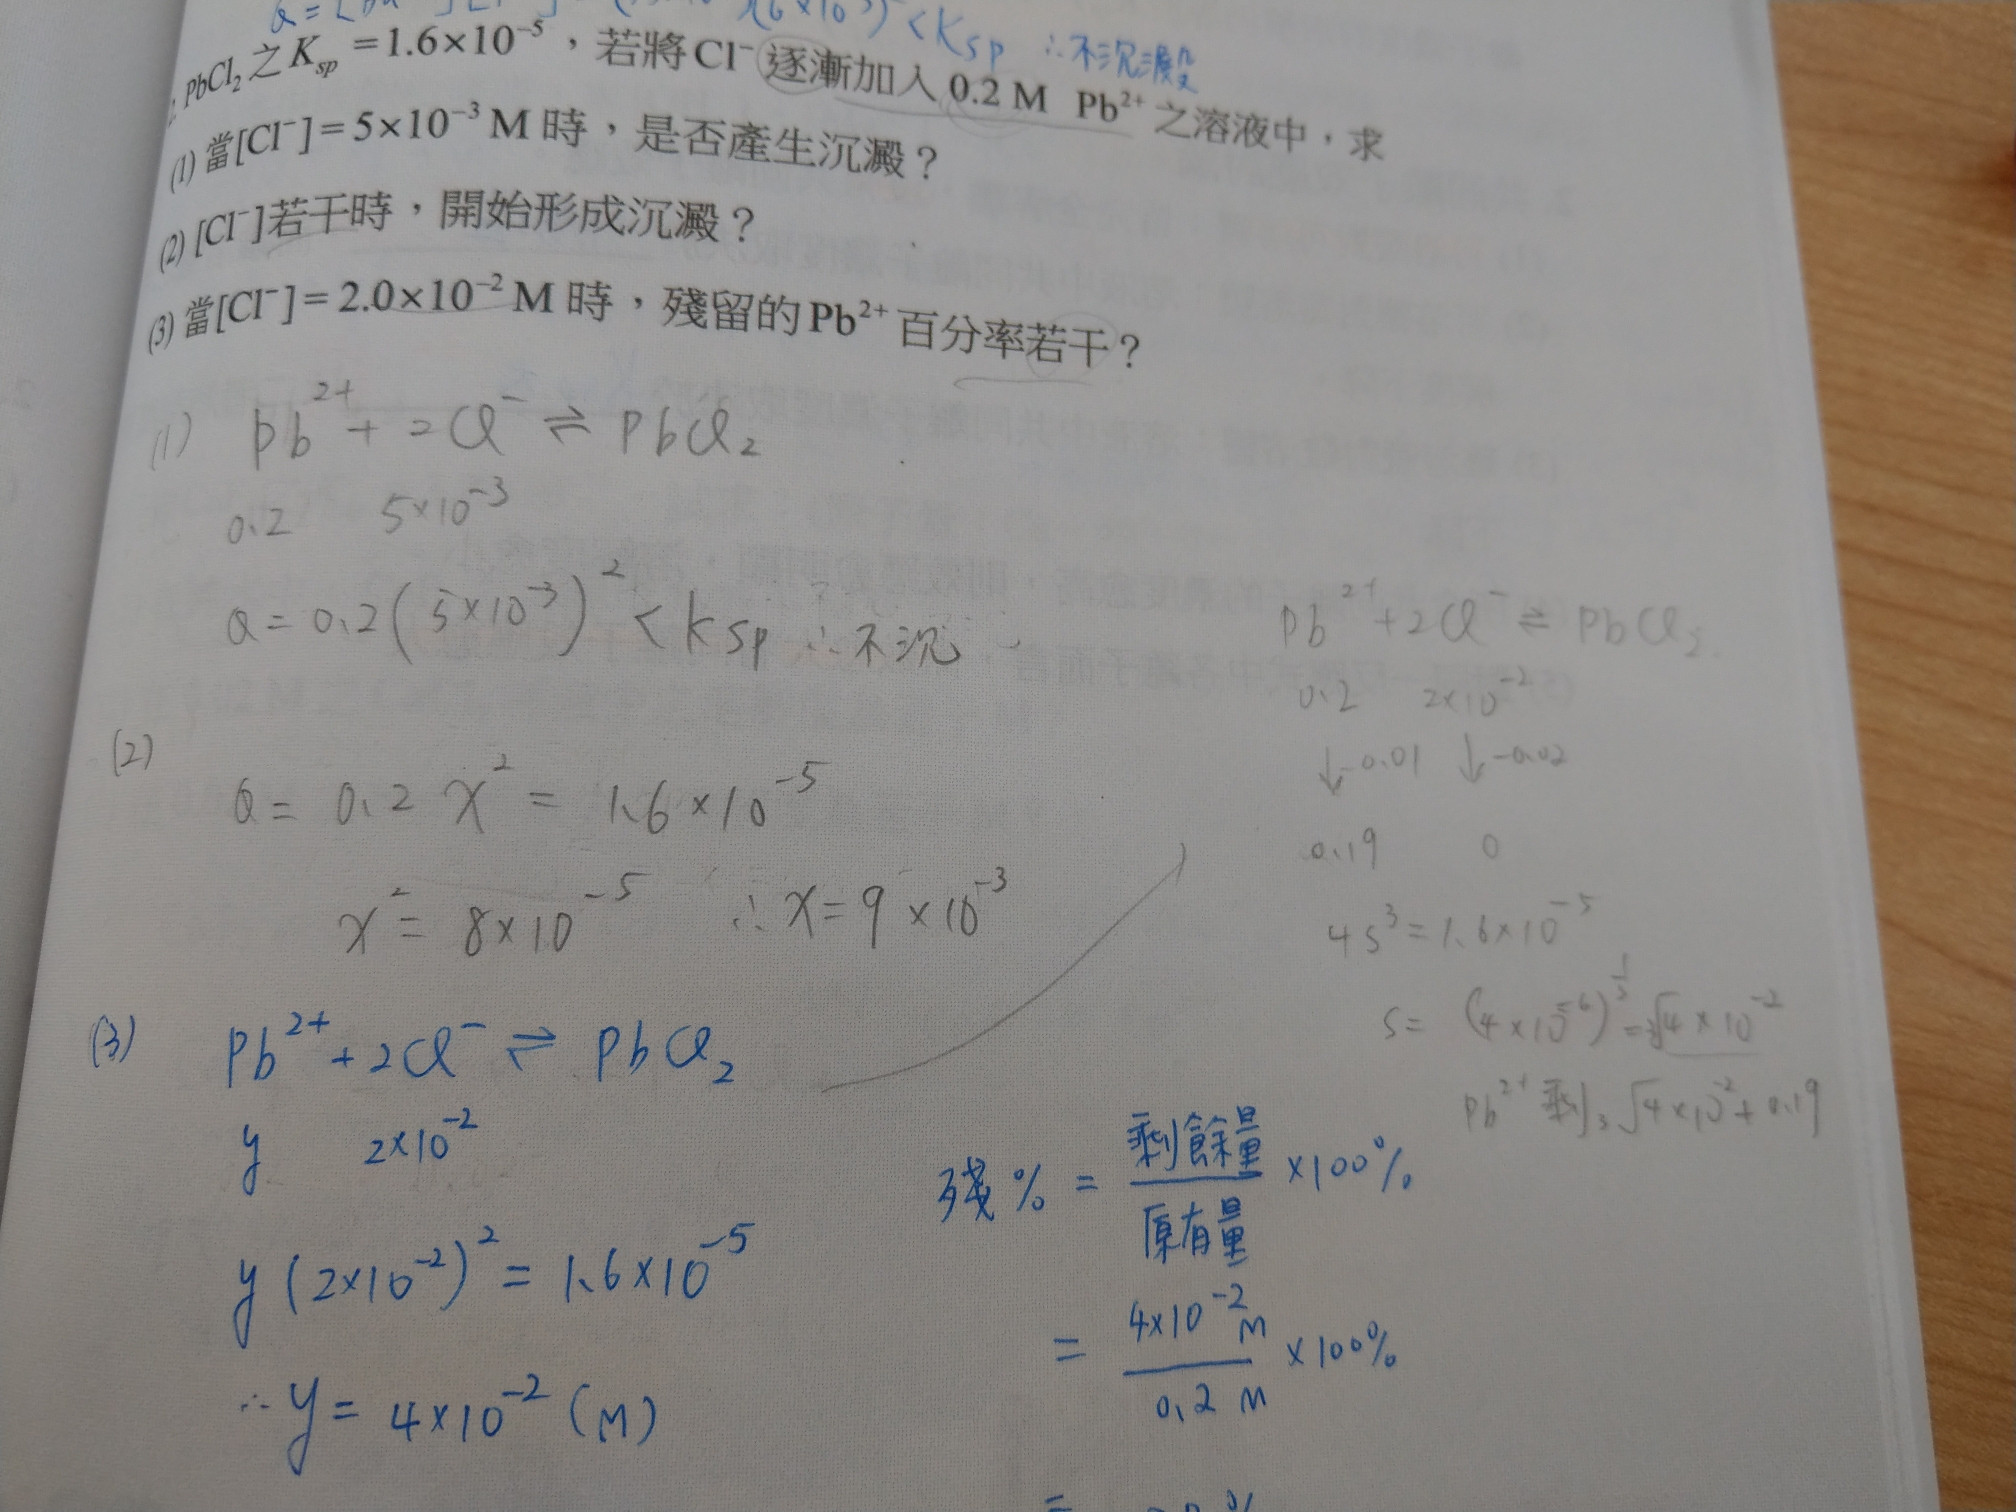 <Ksp ∴不沉澱
PbCl₂之Ksp=1.6×10⁻⁵,若將Cl⁻逐漸加入0.2 M Pb²⁺之溶液中,求
(1)當[Cl⁻]=5×10⁻³ M時,是否產生沉澱?
(2)[Cl⁻]若干時,開始形成沉澱?
(3)當[Cl⁻]=2.0×10⁻² M時,殘留的Pb²⁺百分率若干?
(1) Pb²⁺+2Cl⁻⇌PbCl₂
0.2 5×10⁻³
Q=0.2(5×10⁻³)²<Ksp ∴不沉
(2)
Q=0.2x²=1.6×10⁻⁵
x²=8×10⁻⁵ ∴x=9×10⁻³
(3) Pb²⁺+2Cl⁻⇌PbCl₂
y 2×10⁻²
y(2×10⁻²)²=1.6×10⁻⁵
∴y=4×10⁻²(M)
Pb²⁺+2Cl⁻⇌PbCl₂
0.2 2×10⁻²
↓-0.01 ↓-0.02
0.19 0
4s³=1.6×10⁻⁵
s=(4×10⁻⁶)^⅓=³√4×10⁻²
Pb²⁺剩³√4×10⁻²+0.19
殘%=剩餘量/原有量×100%
=4×10⁻²M/0.2M×100%